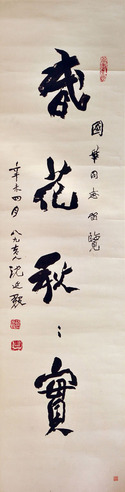 國華同志留覽
春花秋實
辛未四月
八九老人沈延毅